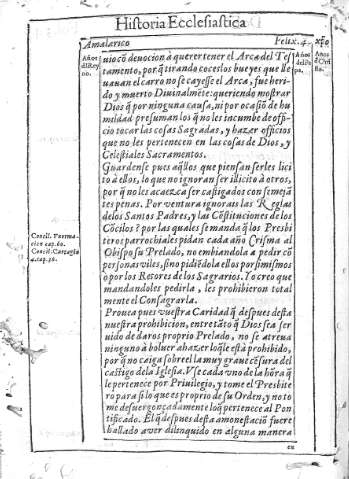 Historia Ecclesiastica
Amalarico
Felix. 4.
Años del Rey no.
Años del Pa pa.
Años d Cri sto.
uio cõ deuocion à querer tener el Arca del Tes
tamento, por q̃ tirando coceslos bueyes que lle
uauan el carro no se cayesse el Arca, fue heri
do y muerto Diuinalmẽte: queriendo mostrar
Dios q̃ por ninguna causa, ni por ocasiõ de hu
mildad presuman los q̃ no les incumbe de offi-
cio tocar las cosas Sagradas, y hazer officios
que no les pertenecen en las cosas de Dios, y
Celestiales Sacramentos.
Guardense pues aq̃llos que piensan serles lici
to à ellos, lo que no ignoran ser illicito à otros,
por q̃ no les acaezca ser castigados con semejã
tes penas. Por ventura ignorais las Reglas
de los Santos Padres, y las Cõstituciones de los
Cõcilos? por las quales se manda q̃ los Presbi
teros parrochiales pidan cada año Crisma al
Obispo su Prelado, no embiandola à pedir cõ
personas viles, sino pidiẽdola ellos por si mismos
ò por los Retores de los Sagrarios. Yo creo que
mandandoles pedirla, les prohibieron total
mente el Consagrarla.
Prouea pues vuestra Caridad q̃ despues desta
nuestra prohibicion, entretãto q̃ Dios sea ser
uido de daros proprio Prelado, no se atreua
ninguno à boluer a hazer lo q̃ le està prohibido,
por q̃ no caiga sobre el la muy graue cẽsura del
castigo dela Iglesia. Vse cada vno de la hõra q̃
le pertenece por Priuilegio, y tome el Presbite
ro para si lo que es proprio de su Orden, y no to
me desuergonçadamente lo q̃ pertenece al Pon
tificado. El q̃ despues desta amonestaciõ fuere
hallado aver delinquido en alguna manera
en